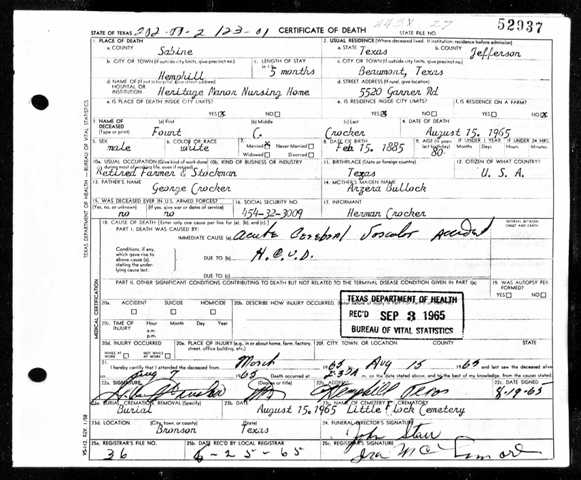 STATE OF TEXAS 202-01-2 123-01 CERTIFICATE OF DEATH STATE FILE NO. 52937
1. PLACE OF DEATH 2. USUAL RESIDENCE (Where deceased lived. If institution: residence before admission)
a. COUNTY Sabine a. STATE Texas b. COUNTY Jefferson
b. CITY OR TOWN (If outside city limits, give precinct no.) Hemphill c. LENGTH OF STAY 5 months c. CITY OR TOWN (If outside city limits, give precinct no.) Beaumont, Texas
d. NAME OF HOSPITAL OR INSTITUTION Heritage Manor Nursing Home d. STREET ADDRESS (If rural, give location) 5520 Garner Rd
e. IS PLACE OF DEATH INSIDE CITY LIMITS? YES NO e. IS RESIDENCE INSIDE CITY LIMITS? YES NO f. IS RESIDENCE ON A FARM? YES NO
3. NAME OF DECEASED (Type or print) (a) First Fount (b) Middle C. (c) Last Crocker 4. DATE OF DEATH August 15, 1965
5. SEX male 6. COLOR OR RACE write 7. Married Never Married Widowed Divorced 8. DATE OF BIRTH Feb 15, 1885 80 IF UNDER 1 YEAR Months Days IF UNDER 24 HRS. Hours Min.
10a. USUAL OCCUPATION (Give kind of work done Retired Farmer & Stockman 10b. KIND OF BUSINESS OR INDUSTRY 11. BIRTHPLACE (State or foreign country) Texas 12. CITIZEN OF WHAT COUNTRY? U. S. A.
13. FATHER'S NAME George Crocker 14. MOTHER'S MAIDEN NAME Argera Bullock
15. WAS DECEASED EVER IN U.S. ARMED FORCES? (Yes, no, or unknown) no (If yes, give war or dates of service) no 16. SOCIAL SECURITY NO. 454-32-3009 17. INFORMANT Herman Crocker
18. CAUSE OF DEATH [Enter only one cause per line for (a), (b), and (c).] INTERVAL BETWEEN ONSET AND DEATH
PART I. DEATH WAS CAUSED BY:
IMMEDIATE CAUSE (a) Acute Cerebral Vascular Accident
Conditions, if any, which gave rise to above cause (a), stating the underlying cause last. DUE TO (b) H.C.V.D.
DUE TO (c)
PART II. OTHER SIGNIFICANT CONDITIONS CONTRIBUTING TO DEATH BUT NOT RELATED TO THE TERMINAL DISEASE CONDITION GIVEN IN PART I(a) 19. WAS AUTOPSY PERFORMED? YES NO
20a. ACCIDENT SUICIDE HOMICIDE 20b. DESCRIBE HOW INJURY OCCURRED.
TEXAS DEPARTMENT OF HEALTH
REC'D SEP 3 1965
BUREAU OF VITAL STATISTICS
20c. TIME OF INJURY Hour a.m. p.m. Month Day Year
20d. INJURY OCCURRED WHILE AT WORK NOT WHILE AT WORK 20e. PLACE OF INJURY (e.g. in or about home, farm, factory, street, office building, etc.) 20f. CITY, TOWN, OR LOCATION COUNTY STATE
21. I hereby certify that I attended the deceased from March 65 Aug 15 1965
Aug 7 65 Death occurred at m. on the date stated above; and to the best of my knowledge, from the causes stated.
22a. SIGNATURE (Degree or title) 22b. ADDRESS Hemphill Texas 22c. DATE SIGNED 8-19-65
23a. BURIAL, CREMATION, REMOVAL (Specify) Burial 23b. DATE August 15, 1965 23c. NAME OF CEMETERY OR CREMATORY Little Flock Cemetery
23d. LOCATION (City, town, or county) Bronson (State) Texas 24. FUNERAL DIRECTOR'S SIGNATURE John Starr
25a. REGISTRAR'S FILE NO. 36 25b. DATE REC'D BY LOCAL REGISTRAR 6-25-65
TEXAS DEPARTMENT OF HEALTH - BUREAU OF VITAL STATISTICS
MEDICAL CERTIFICATION